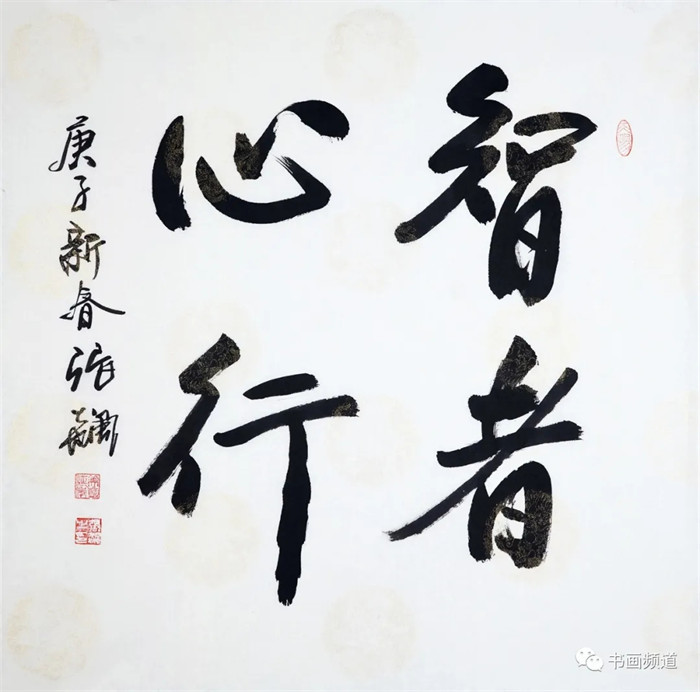 智者
心行
庚子新春张
书画频道